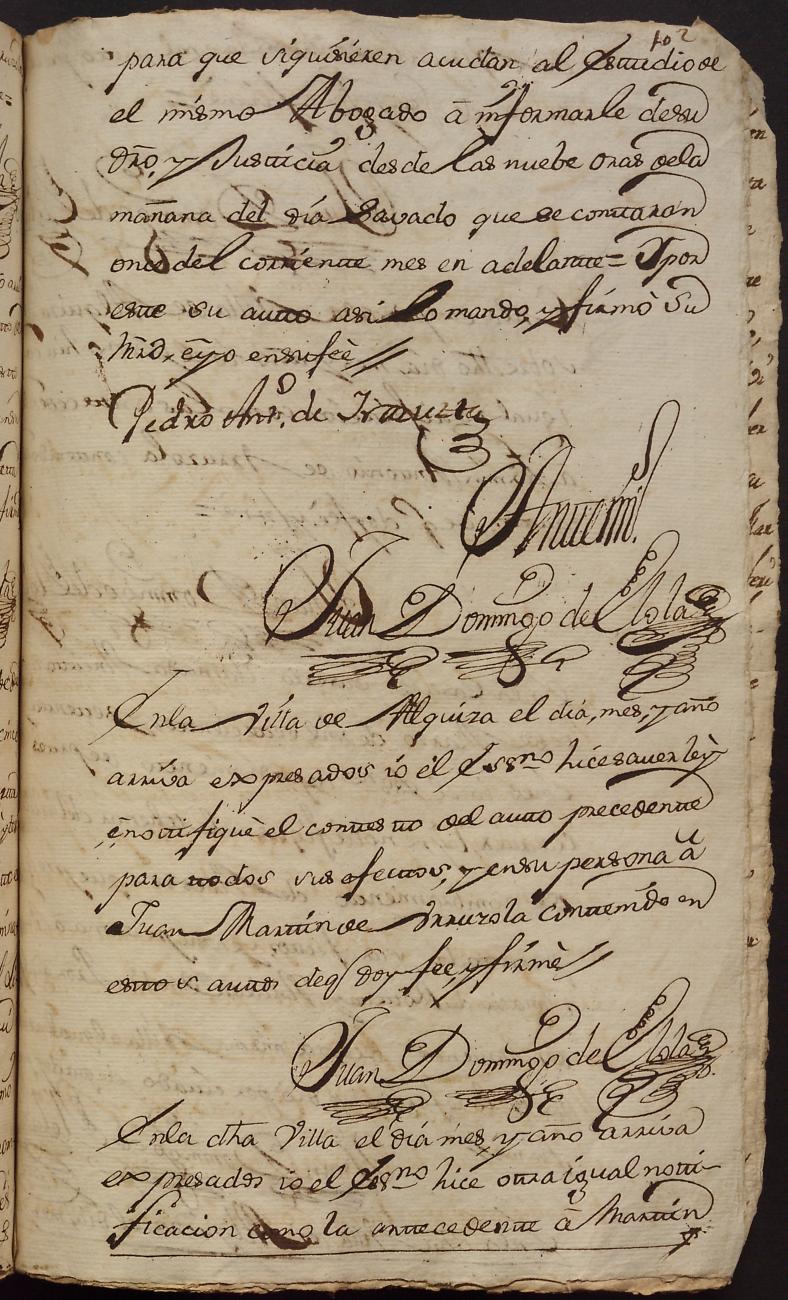 102
para que siquisieren acudan al Estudio de
el mismo Abogado â informarle de su
dro, y Justicia desde las nuebe oras dela
mañana del dia Savado que se contaran
once del corriente mes en adelante= Y por
este su auto asi lo mando, y firmò su
Mrd. e yo en su feè //
Pedro Antº. de Yrazuzta
Antemi.
Juan Domingo de Elola
En la Villa de Alquiza el dia, mes, y año
arriva expresados io el Essno hice saver leÿ
è notifiquè el contesto del auto precedente
para todos sus efectos, y en su persona â
Juan Martin de Yrruzola contenido en
estos autos de q doy fee, y firmè //
Juan Domingo de Elola
En la dha Villa el dia mes, y año arriva
expresados io el Essno hice otra igual noti-
ficacion como la antecedente â Martin